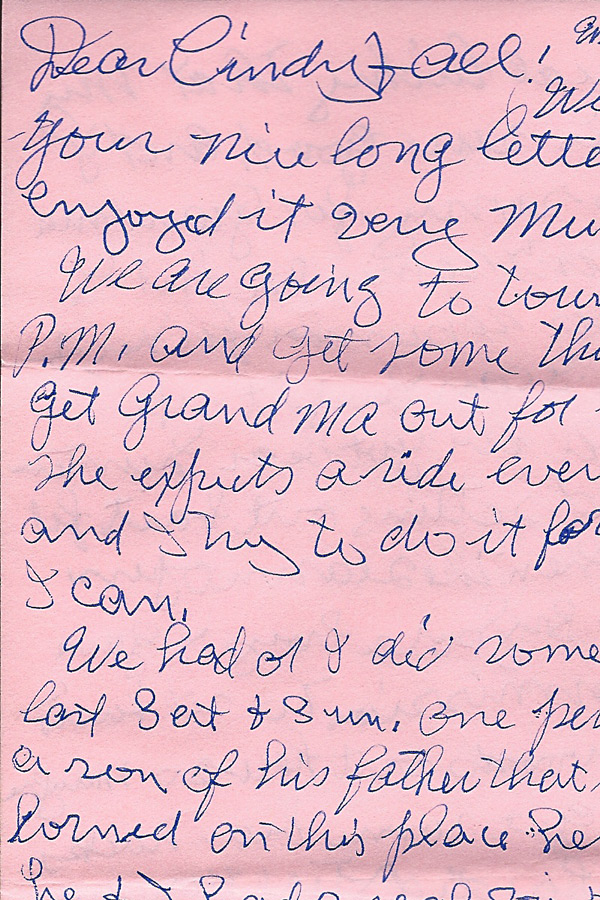 Dear Cindy & all! 
We
Your nice long lette
enjoyed it very mu
We are going to tow
P.M. and get some thi
get Grand Ma out for
she expects a ride ever
and I try to do it for
I can.
We had or I did some
last Sat & Sun. one per
a son of his father that
horned on this place he
he & I had a real